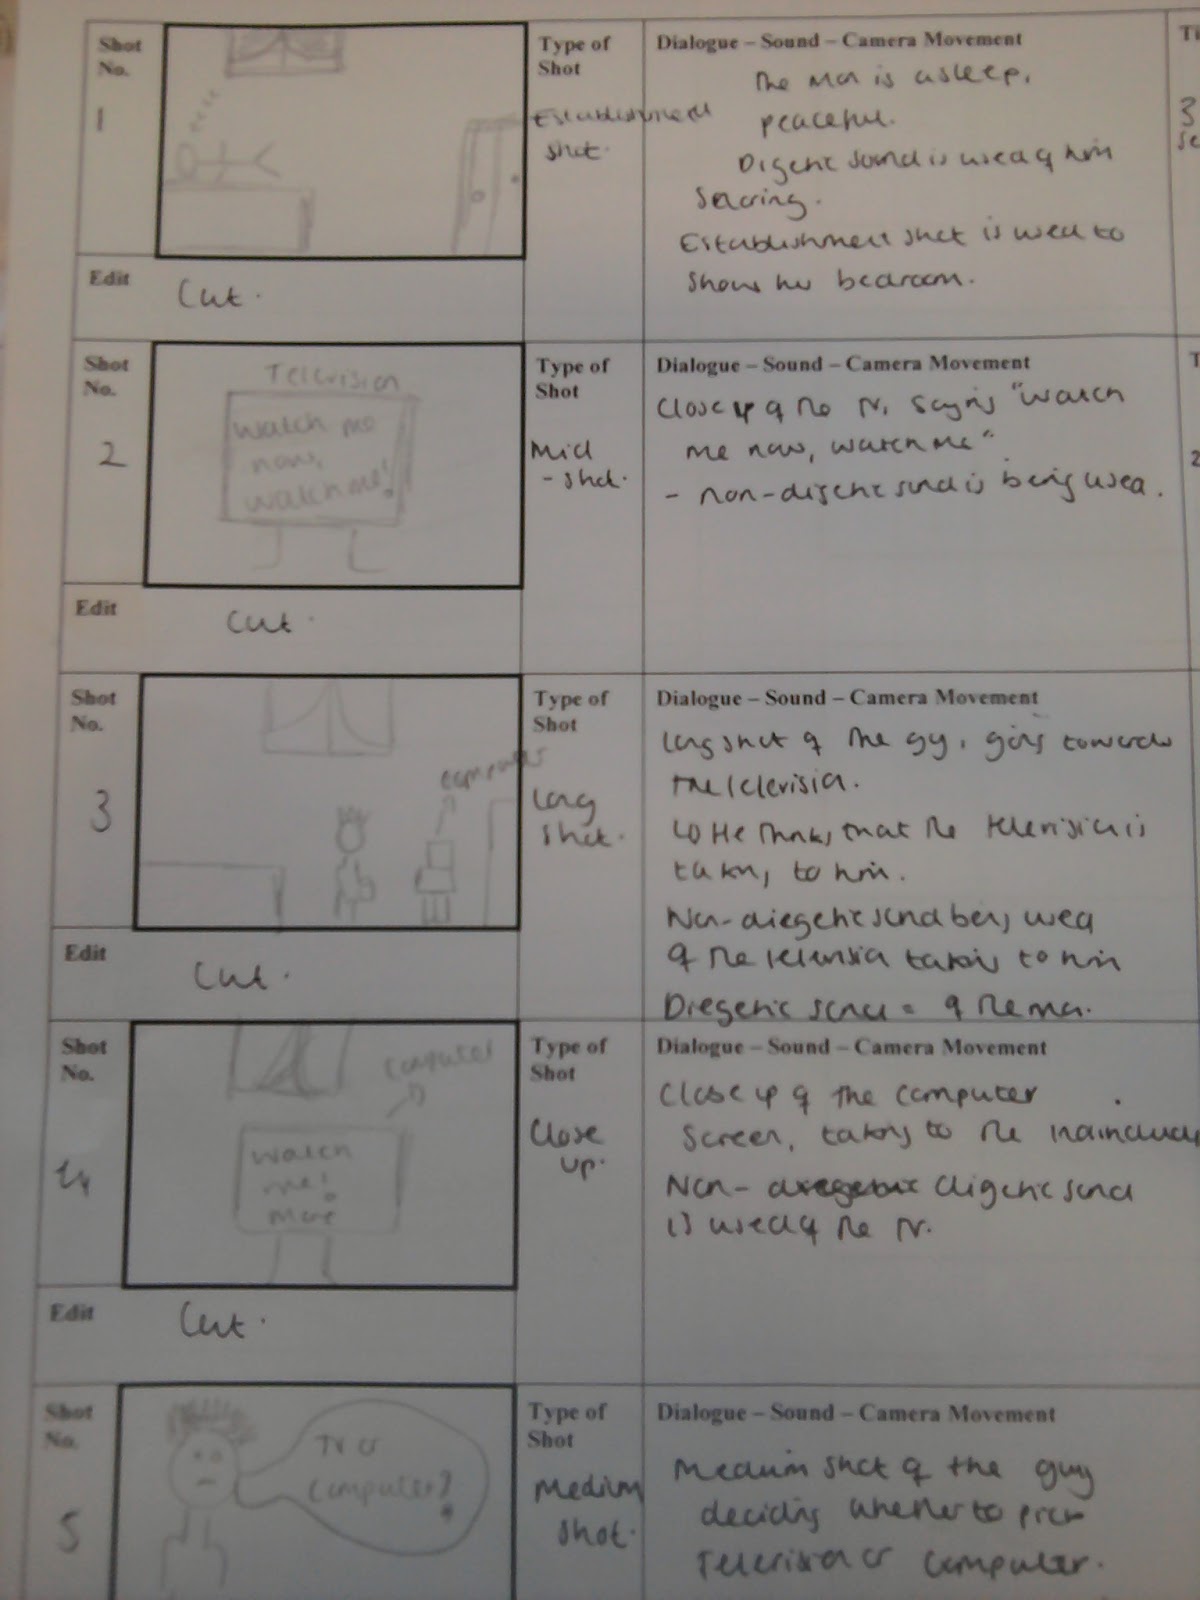 Shot
No.
1
Type of
Shot
Establishment
shot.
Dialogue – Sound – Camera Movement
The man is asleep,
peaceful.
Digetic sound is used of him
snoring.
Establishment shot is used to
show his bedroom.
Ti
3
se
Edit
Cut.
Shot
No.
2
Television
Watch me
now,
watch me!
Type of
Shot
Mid
- shot.
Dialogue – Sound – Camera Movement
Close up of the TV, saying "Watch
me now, watch me"
- non-digetic sound is being used.
T
2
Edit
Cut.
Shot
No.
3
computer
Type of
Shot
Long
shot.
Dialogue – Sound – Camera Movement
Long shot of the guy, going towards
the television.
He thinks that the television is
talking to him.
Non-diegetic sound being used
of the television talking to him
Diegetic sound = of the man.
Edit
Cut.
Shot
No.
4
computer
Watch
me!
more
Type of
Shot
Close
up.
Dialogue – Sound – Camera Movement
Close up of the computer
screen, talking to the individual
Non- digetic sound
is used of the TV.
Edit
Cut.
Shot
No.
5
TV or
computer?
Type of
Shot
Medium
shot.
Dialogue – Sound – Camera Movement
Medium shot of the guy
deciding whether to pick
Television or computer.